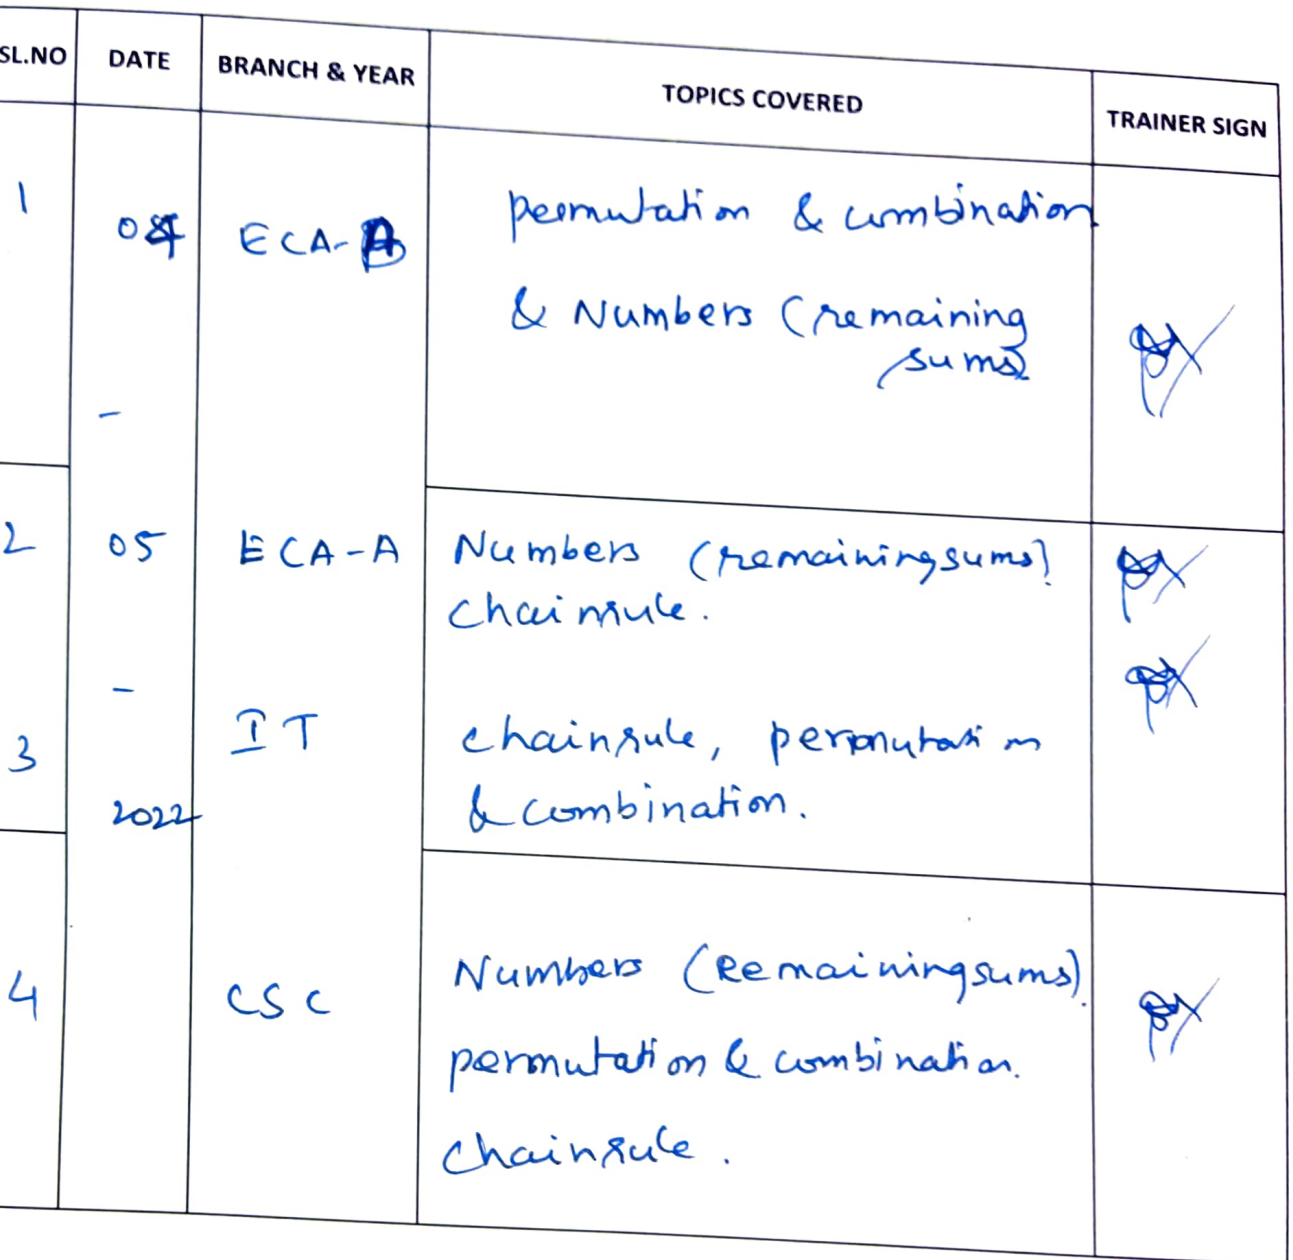 SL.NO DATE BRANCH & YEAR TOPICS COVERED TRAINER SIGN
1 04 ECA-B permutation & combination
& Numbers (remaining
sums)
-
2 05 ECA-A Numbers (remaining sums)
chainrule.
-
3 IT chainrule, permutation
2022 & combination.
4 CSC Numbers (Remaining sums)
permutation & combination.
chainrule.